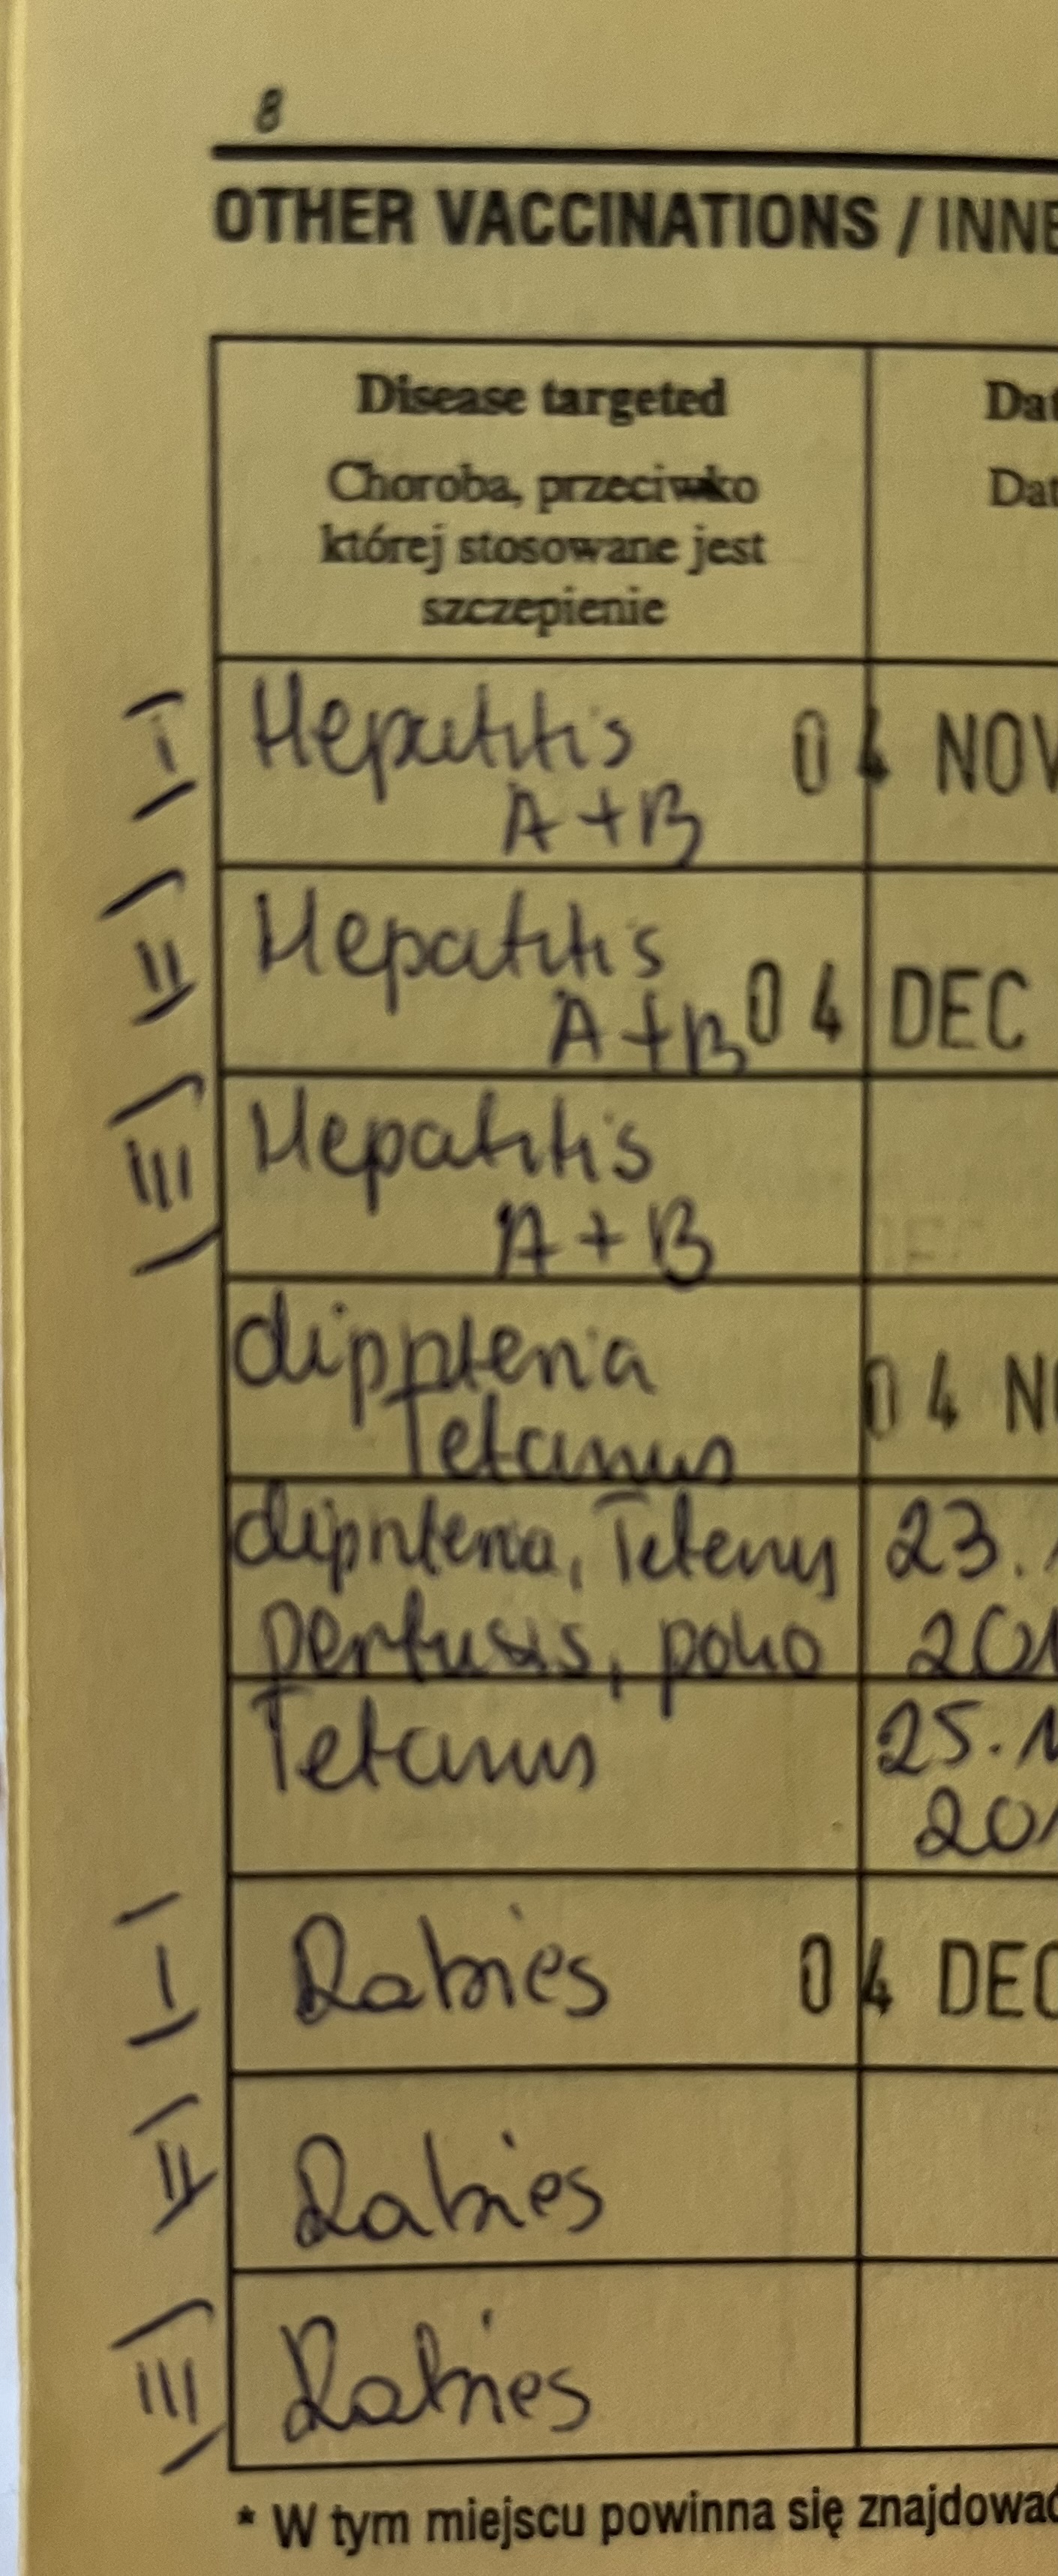 8
OTHER VACCINATIONS / INNE
Disease targeted
Dat
Choroba, przeciwko
Dat
której stosowane jest
szczepienie
I
Hepatitis
04 NOV
A+B
II
Hepatitis
A+B
04 DEC
III
Hepatitis
A+B
dippteria
04 N
Tetanus
diphteria, Tetenus
23.
pertusis, polio
201
Tetanus
25.1
201
I
Rabies
04 DEC
II
Rabies
III
Rabies
* W tym miejscu powinna się znajdować